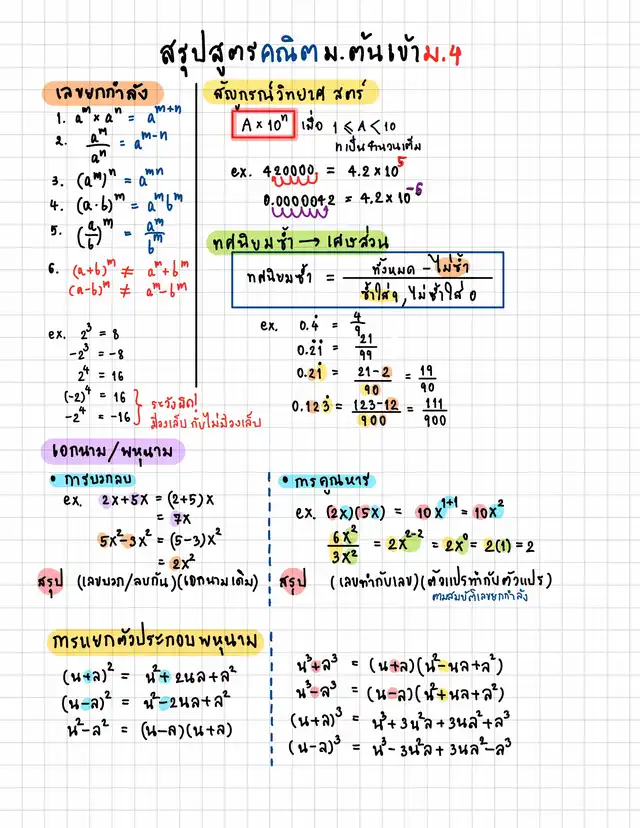 สรุปสูตรคณิตม.ต้นเข้าม.4
เลขยกกำลัง
1. a^m × a^n = a^(m+n)
2. a^m/a^n = a^(m-n)
3. (a^m)^n = a^(mn)
4. (a·b)^m = a^m b^m
5. (a/b)^m = a^m/b^m
6. (a+b)^m ≠ a^m+b^m
(a-b)^m ≠ a^m-b^m
ex. 2^3 = 8
-2^3 = -8
2^4 = 16
(-2)^4 = 16
-2^4 = -16
ระวังผิด!
มีวงเล็บ กับไม่มีวงเล็บ
สัญกรณ์วิทยาศาสตร์
A × 10^n เมื่อ 1 ≤ A < 10
n เป็นจำนวนเต็ม
ex. 420000 = 4.2 × 10^5
0.0000042 = 4.2 × 10^-6
ทศนิยมซ้ำ → เศษส่วน
ทศนิยมซ้ำ = ทั้งหมด - ไม่ซ้ำ / ซ้ำใส่ 9, ไม่ซ้ำใส่ 0
ex. 0.4̇ = 4/9
0.2̇1̇ = 21/99
0.21̇ = (21-2)/90 = 19/90
0.123̇ = (123-12)/900 = 111/900
เอกนาม/พหุนาม
• การบวกลบ
ex. 2x+5x = (2+5)x
= 7x
5x²-3x² = (5-3)x²
= 2x²
สรุป (เลขบวก/ลบกัน)(เอกนามเดิม)
• การคูณหาร
ex. (2x)(5x) = 10x^(1+1) = 10x²
6x²/3x² = 2x^(2-2) = 2x^0 = 2(1) = 2
สรุป (เลขทำกับเลข)(ตัวแปรทำกับตัวแปร)
ตามสมบัติเลขยกกำลัง
การแยกตัวประกอบพหุนาม
(น+ล)² = น²+2นล+ล²
(น-ล)² = น²-2นล+ล²
น²-ล² = (น-ล)(น+ล)
น³+ล³ = (น+ล)(น²-นล+ล²)
น³-ล³ = (น-ล)(น²+นล+ล²)
(น+ล)³ = น³+3น²ล+3นล²+ล³
(น-ล)³ = น³-3น²ล+3นล²-ล³